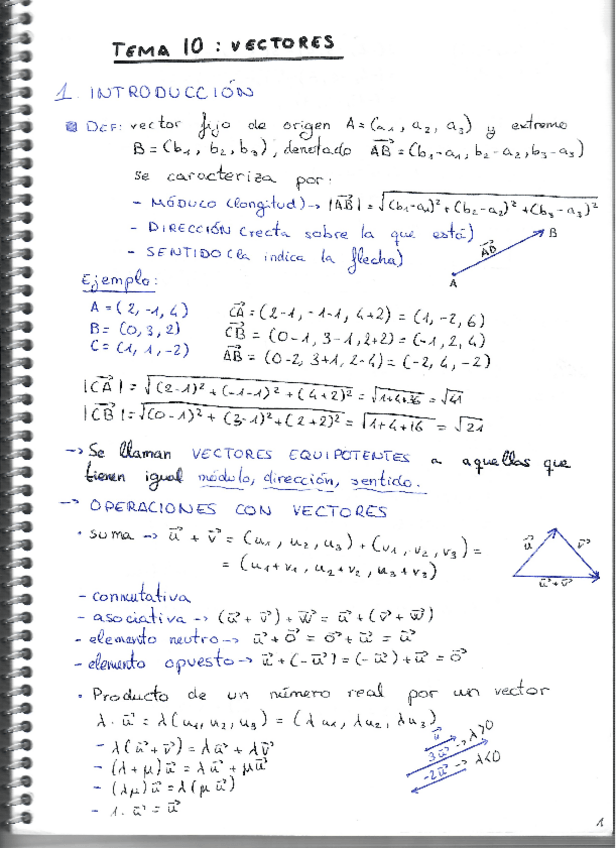 TEMA 10 : VECTORES
1. INTRODUCCIÓN
DEF: vector fijo de origen A=(a₁, a₂, a₃) y extremo
B=(b₁, b₂, b₃), denotado AB⃗=(b₁-a₁, b₂-a₂, b₃-a₃)
se caracteriza por:
- MÓDULO (longitud) → |AB⃗| = √(b₁-a₁)²+(b₂-a₂)²+(b₃-a₃)²
- DIRECCIÓN (recta sobre la que está)
- SENTIDO (la indica la flecha)
A AB⃗ B
Ejemplo:
A = (2, -1, 4) CA⃗ = (2-1, -1-1, 4+2) = (1, -2, 6)
B = (0, 3, 2) CB⃗ = (0-1, 3-1, 2+2) = (-1, 2, 4)
C = (1, 1, -2) AB⃗ = (0-2, 3+1, 2-4) = (-2, 4, -2)
|CA⃗| = √(2-1)² + (-1-1)² + (4+2)² = √1+4+36 = √41
|CB⃗| = √(0-1)² + (3-1)² + (2+2)² = √1+4+16 = √21
→ Se llaman VECTORES EQUIPOTENTES a aquellas que
tienen igual módulo, dirección, sentido.
→ OPERACIONES CON VECTORES
· suma → u⃗ + v⃗ = (u₁, u₂, u₃) + (v₁, v₂, v₃) =
= (u₁+v₁, u₂+v₂, u₃+v₃)
u⃗ v⃗
u⃗+v⃗
- conmutativa
- asociativa → (u⃗ + v⃗) + w⃗ = u⃗ + (v⃗ + w⃗)
- elemento neutro → u⃗ + 0⃗ = 0⃗ + u⃗ = u⃗
- elemento opuesto → u⃗ + (-u⃗) = (-u⃗) + u⃗ = 0⃗
· Producto de un número real por un vector
λ · u⃗ = λ(u₁, u₂, u₃) = (λu₁, λu₂, λu₃)
- λ(u⃗ + v⃗) = λu⃗ + λv⃗
- (λ + μ)u⃗ = λu⃗ + μu⃗
- (λμ)u⃗ = λ(μu⃗)
- 1 · u⃗ = u⃗
u⃗
3u⃗ → λ>0
-2u⃗ → λ<0
1